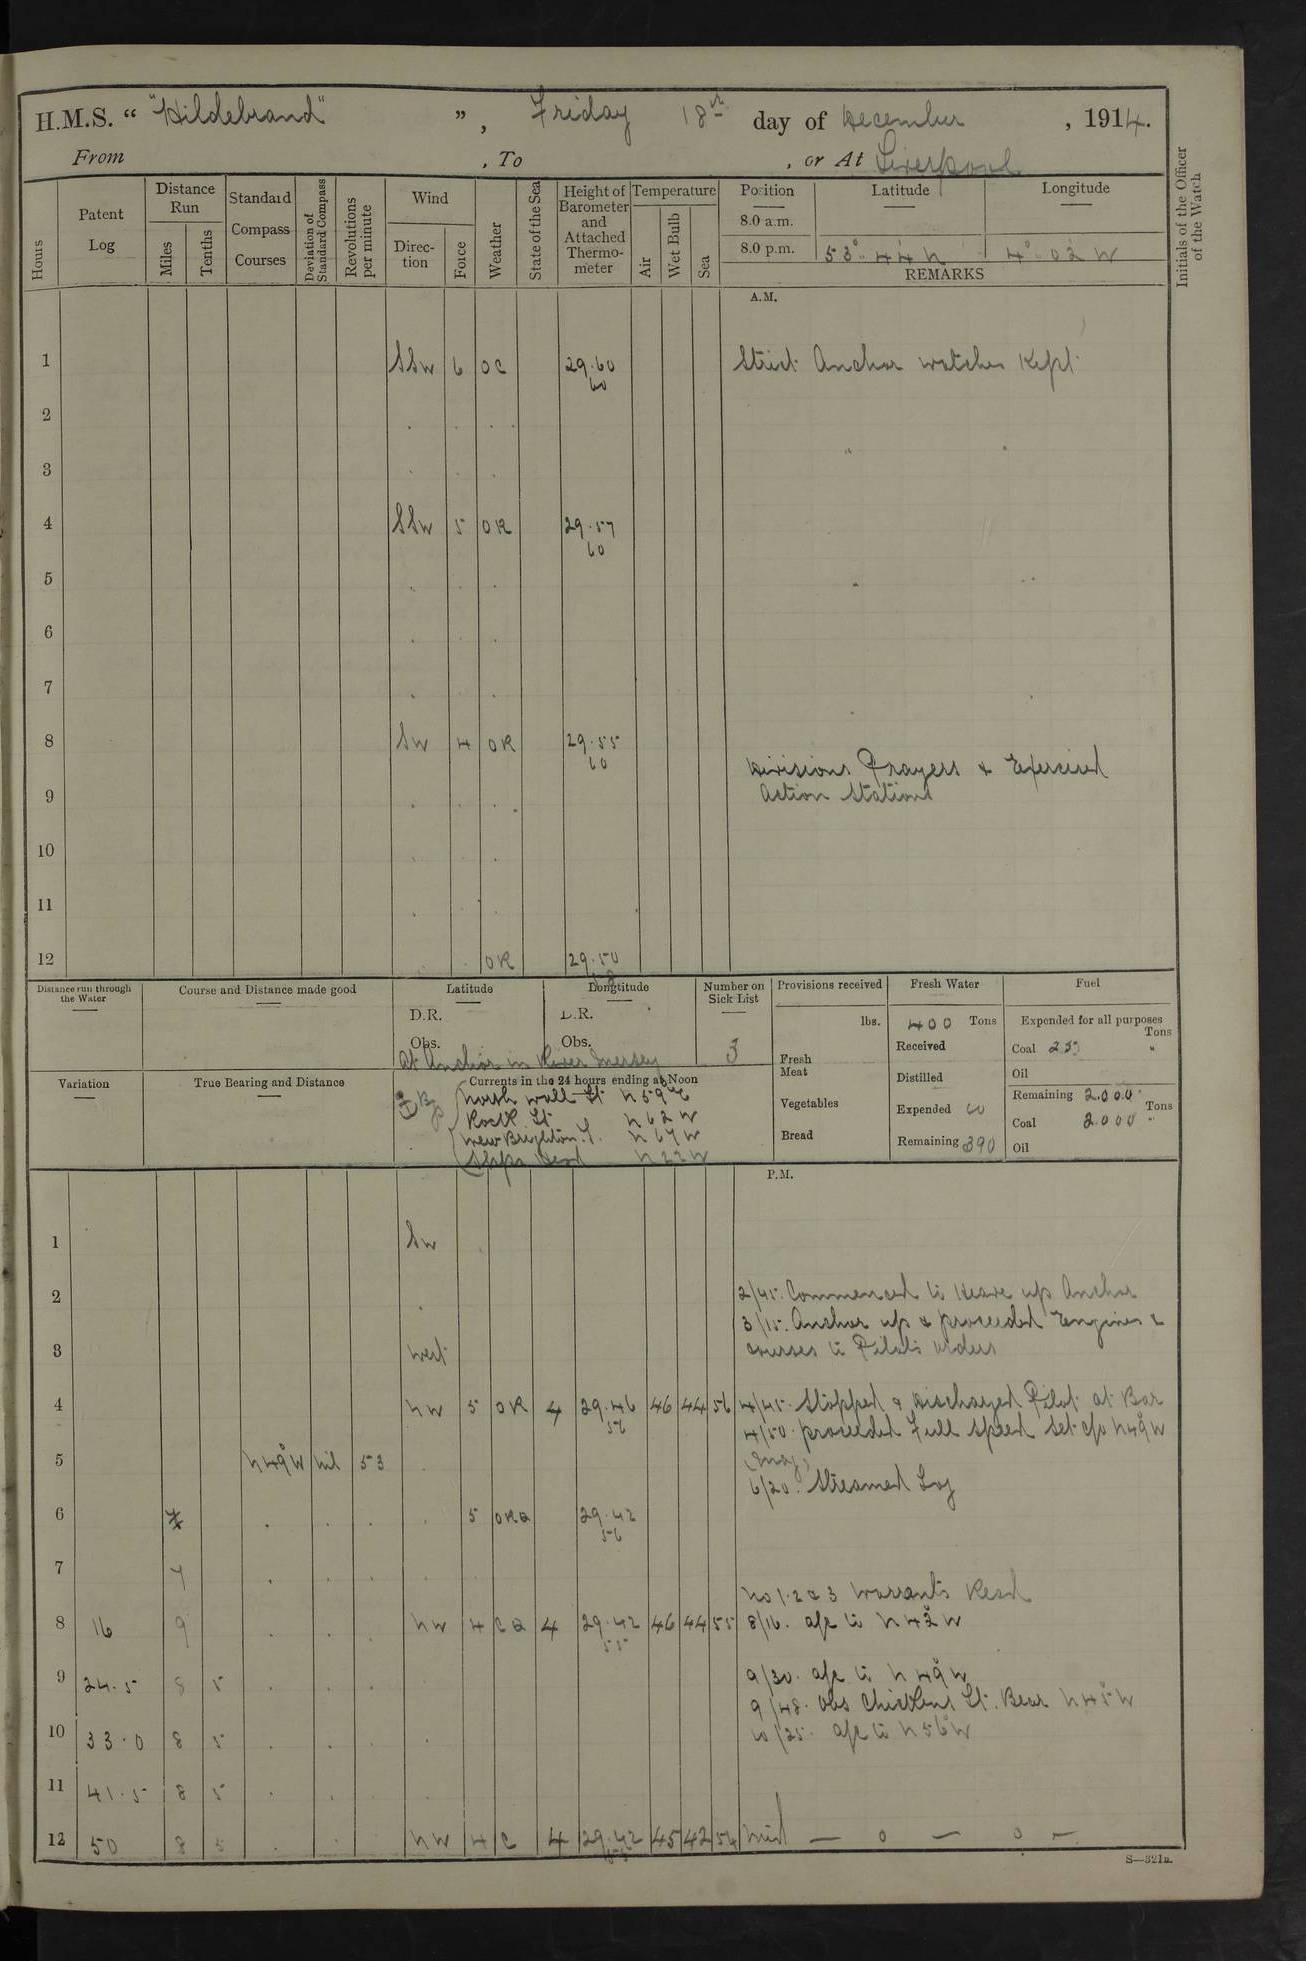 H.M.S. " "Hildebrand" ", Friday 18th day of December , 1914.
From , To , or At Liverpool
Hours
Patent Log
Distance Run
Miles
Tenths
Standard Compass Courses
Deviation of Standard Compass
Revolutions per minute
Wind
Direction
Force
Weather
State of the Sea
Height of Barometer and Attached Thermometer
Temperature
Air
Wet Bulb
Sea
Position Latitude Longitude
8.0 a.m.
8.0 p.m. 53° 44' N 4° 02' W
REMARKS
Initials of the Officer of the Watch
A.M.
1 SSW 6 OC 29.60 Strict Anchor watches Kept
60
2 . . . "
3 . . .
4 SSW 5 OR 29.57
60
5 . . .
6 . . .
7 . . .
8 SW 4 OR 29.55
60
Divisions Prayers & Exercised
9 . . . Action Stations
10 . .
11 . . .
12 . . OR 29.50
Distance run through the Water
Course and Distance made good
Latitude
D.R.
Obs.
Longtitude
D.R.
Obs.
At Anchor in River Mersey
Number on Sick List
3
Provisions received
lbs.
Fresh Meat
Vegetables
Bread
Fresh Water
400 Tons
Received
Distilled
Expended 10
Remaining 390
Fuel
Expended for all purposes
Tons
Coal "
Oil
Remaining 2.000
Tons
Coal 2.000 "
Oil
Variation
True Bearing and Distance
Currents in the 24 hours ending at Noon
North wall Lt N 59 E
Rock Lt N 62 W
New Brighton N 67 W
Ships Head N 22 W
P.M.
1 SW
2 . 2/45. Commenced to Heave up Anchor
3/15. Anchor up & proceeded Engines &
3 West courses to Pilots orders
4 NW 5 OR 4 29.46 46 44 56 4/45. Stopped & discharged Pilot at Bar
56 4/50. proceeded Full Speed Set c/o N49°W
5 N49°W nil 53 . (mag)
6/20. Streamed Log
6 . . . . 5 ORQ 29.42
56
7 7 . . . .
No 1. 2 & 3 Warrants Read
8 16 9 . . . NW 4 CQ 4 29.42 46 44 55 8/16. a/c to N42°W
55
9 24.5 8 5 . . . 9/30. a/c to N 49°W
9/48. obs Chickens Lt. Bear N45°W
10 33.0 8 5 . . . . 10/25. a/c to N56°W
11 41.5 8 5 . . . .
12 50 8 5 . . NW 4 C 4 29.42 45 42 54 Mid — o — o —
S—321a.